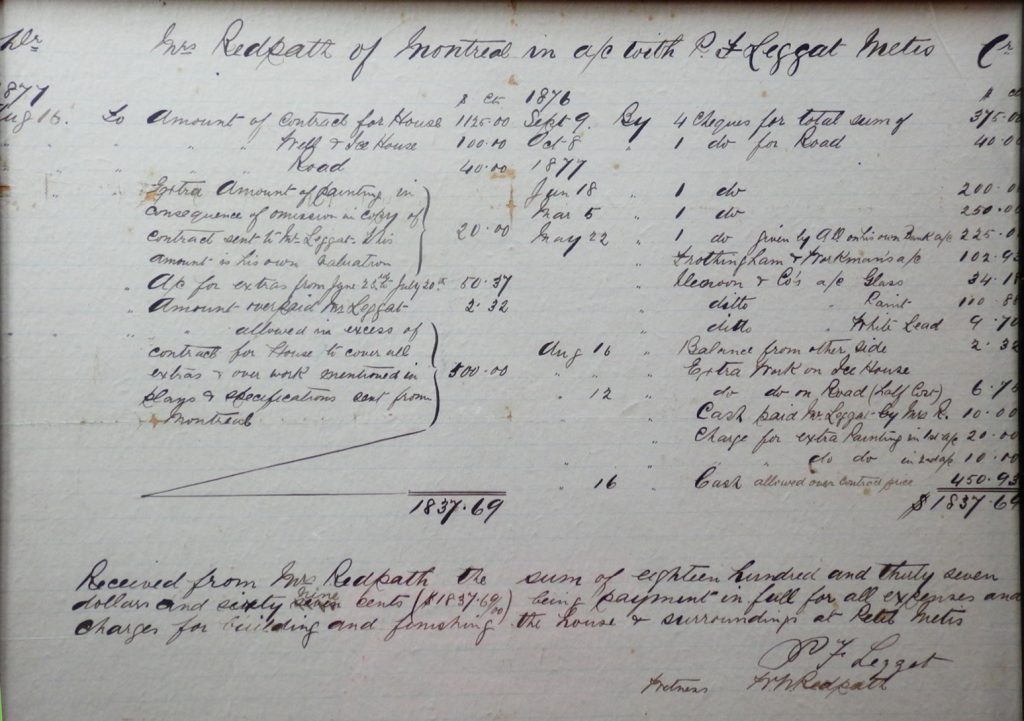 Dr Mrs Redpath of Montreal in a/c with P. F Leggat Metis Cr
1877 $ cts 1876 $ ct
Aug 16. To Amount of contract for House 1125.00 Sept 9. By 4 Cheques for total sum of 375.00
" " " Well & Ice House 100.00 Oct 8 " 1 do for Road 40.00
" " " Road 40.00 1877
Extra Amount of painting in Jan 18 " 1 do 200.00
consequence of omission in copy of Mar 5 " 1 do 250.00
contract sent to Mr Leggat. This 20.00 May 22 " 1 do given by All on his own Bank a/c 225.0
amount is his own valuation Frothingham & Workmans a/c 102.93
" A/c for extras from June 26th to July 20th 50.37 " & Co's a/c Glass 34.18
" Amount overpaid Mr Leggat 2.32 " ditto " Paint 100.8
" allowed in excess of " ditto " White Lead 9.70
contract for House to cover all Aug 16 " Balance from other side 2.32
extras & over work mentioned in 500.00 " " " Extra Work on Ice House
plans & specifications sent from " 12 " do do on Road (half Cow) 6.75
Montreal " Cash paid Mr Leggat by Mrs R. 10.00
" Charge for extra Painting in 1st a/c 20.00
" do do in 2nd a/c 10.00
" 16 " Cash allowed over contract price 450.93
1837.69 $1837.69
Received from Mrs Redpath the sum of eighteen hundred and thirty seven
dollars and sixty nine cents ($1837.69) being payment in full for all expenses and
charges for building and finishing the house & surroundings at Petit Metis
P F Leggat
Witness Redpath